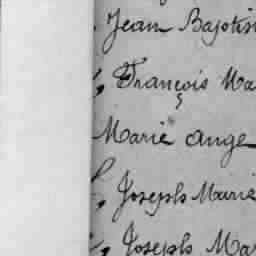 Jean Baptis
, François Ma
Marie Ange
, Joseph Marie
, Joseph Mar